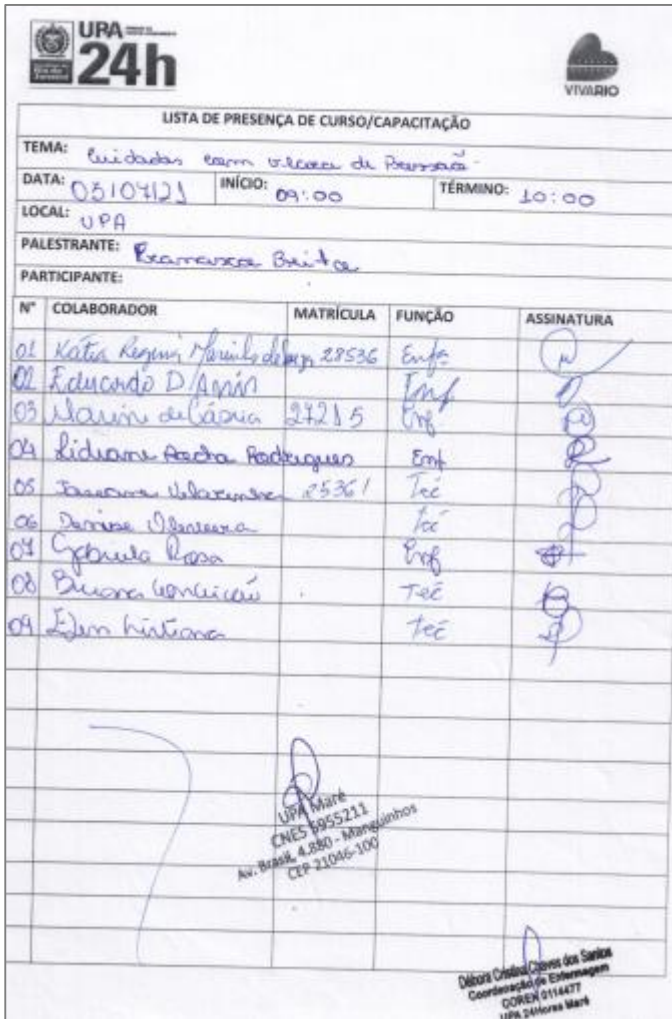 UPA
24h
VIVARIO
LISTA DE PRESENÇA DE CURSO/CAPACITAÇÃO
TEMA: Cuidados com úlcera de Pressão
DATA: 05/07/21 INÍCIO: 09:00 TÉRMINO: 10:00
LOCAL: UPA
PALESTRANTE: Brito
PARTICIPANTE:
N° COLABORADOR MATRÍCULA FUNÇÃO ASSINATURA
01 Katia Regina 28536 Enfª
02 Eduardo D Enf
03 de Cássia 27215 Enf
04 Lidiane Rocha Rodrigues Enf
05 25361 Tec
06 Denise Oliveira Tec
07 Gabriela Rosa Enf
08 Bruna Conceição Tec
09 Elen Cristiana Tec
UPA Maré
CNES 6955211
Av. Brasil, 4.880 - Manguinhos
CEP 21046-100
Débora Cristina Chaves dos Santos
Coordenação de Enfermagem
COREN 0114477
UPA 24Horas Maré